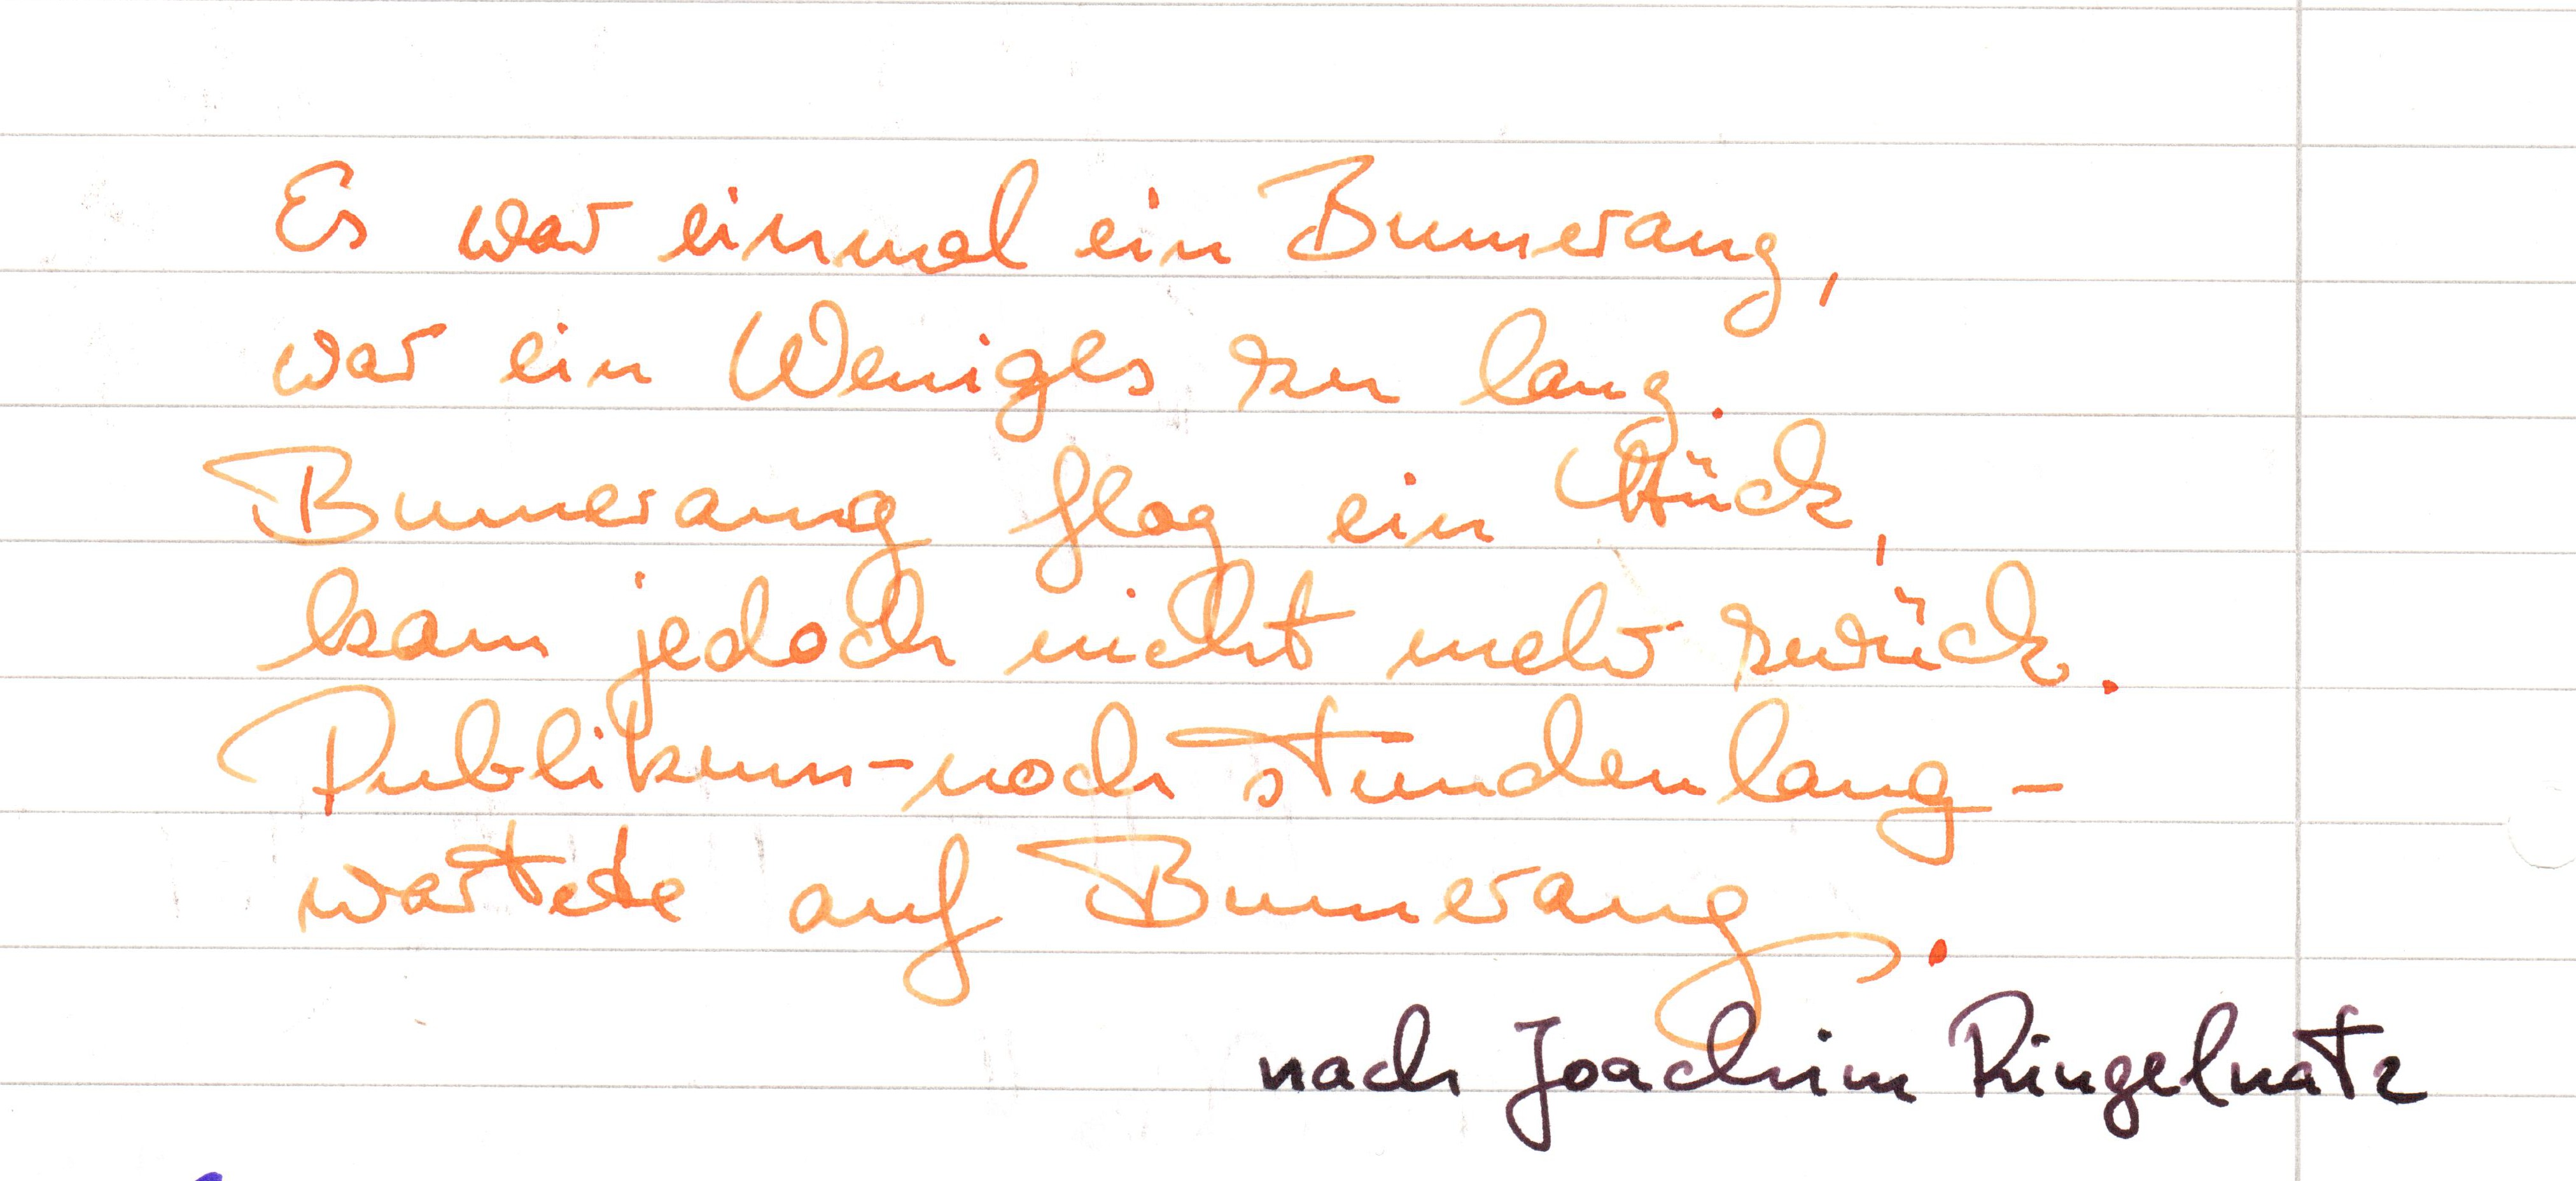 Es war einmal ein Bumerang,
war ein Weniges zu lang.
Bumerang flog ein Stück,
kam jedoch nicht mehr zurück.
Publikum - noch stundenlang -
wartete auf Bumerang.
nach Joachim Ringelnatz